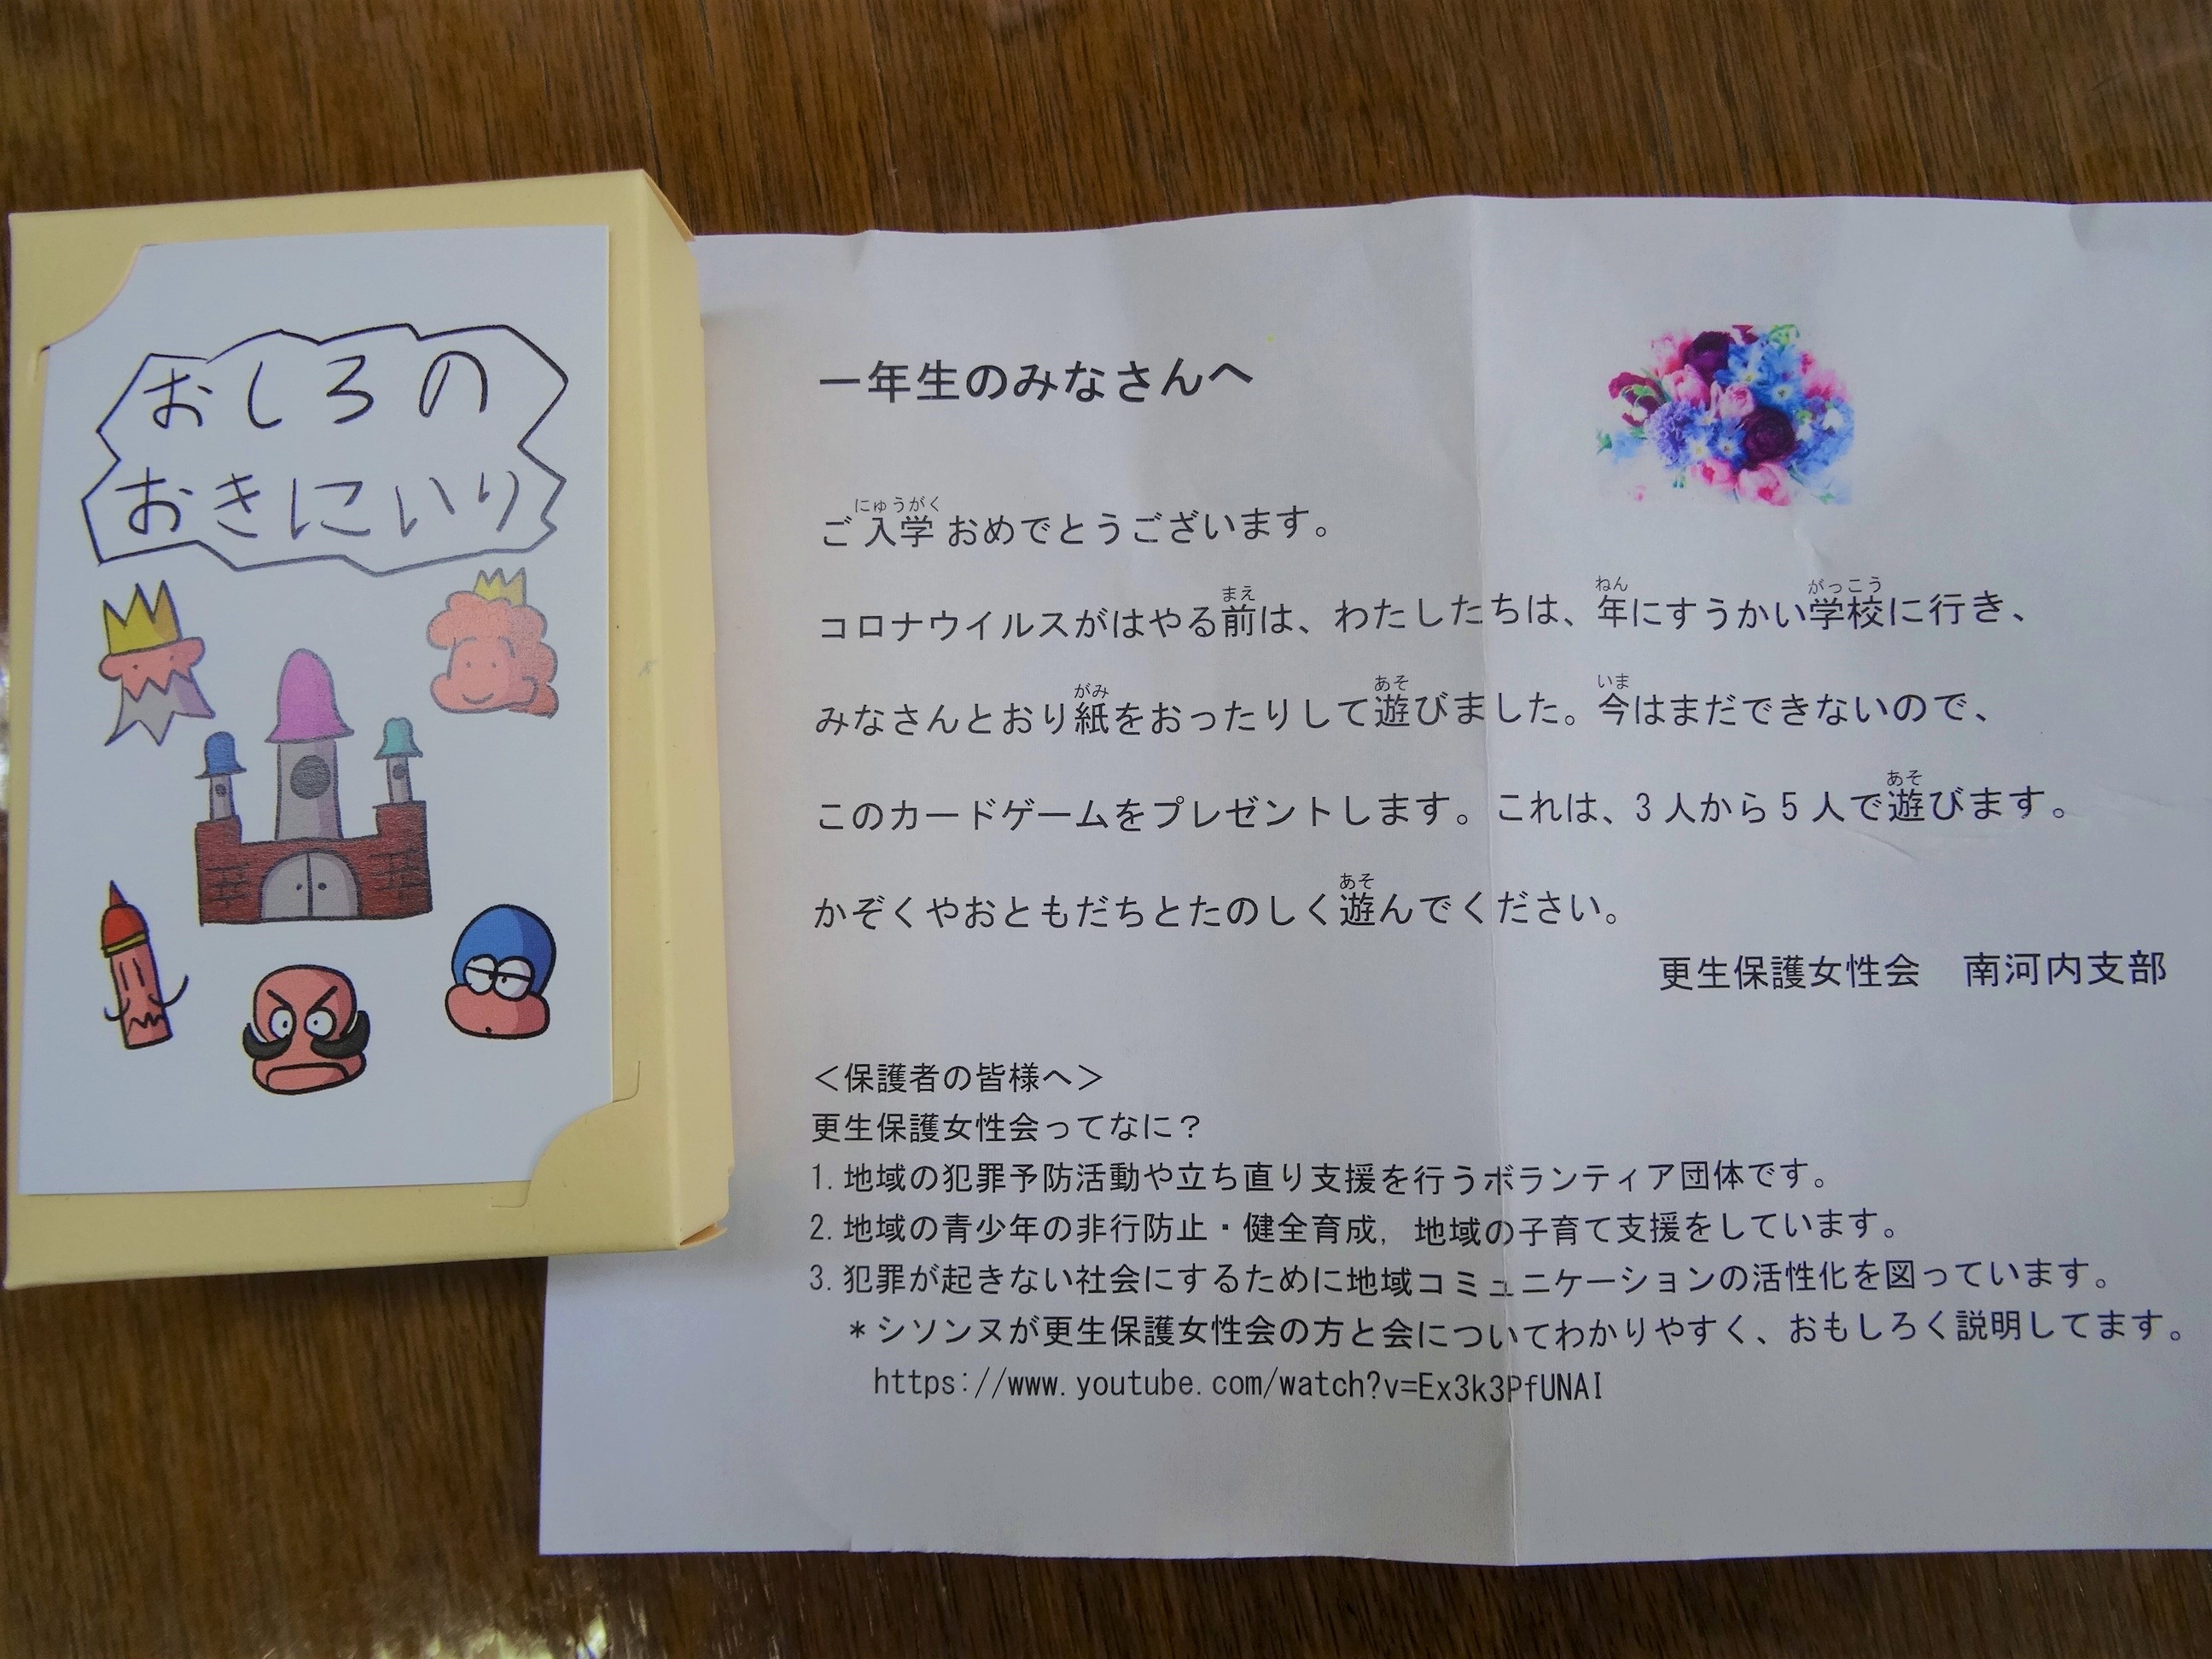 おしろの
おきにいり
一年生のみなさんへ
にゅうがく
ご入学おめでとうございます。
まえ ねん がっこう
コロナウイルスがはやる前は、わたしたちは、年にすうかい学校に行き、
がみ あそ いま
みなさんとおり紙をおったりして遊びました。今はまだできないので、
あそ
このカードゲームをプレゼントします。これは、3人から5人で遊びます。
あそ
かぞくやおともだちとたのしく遊んでください。
更生保護女性会　南河内支部
＜保護者の皆様へ＞
更生保護女性会ってなに？
1. 地域の犯罪予防活動や立ち直り支援を行うボランティア団体です。
2. 地域の青少年の非行防止・健全育成, 地域の子育て支援をしています。
3. 犯罪が起きない社会にするために地域コミュニケーションの活性化を図っています。
＊シソンヌが更生保護女性会の方と会についてわかりやすく、おもしろく説明してます。
https://www.youtube.com/watch?v=Ex3k3PfUNAI